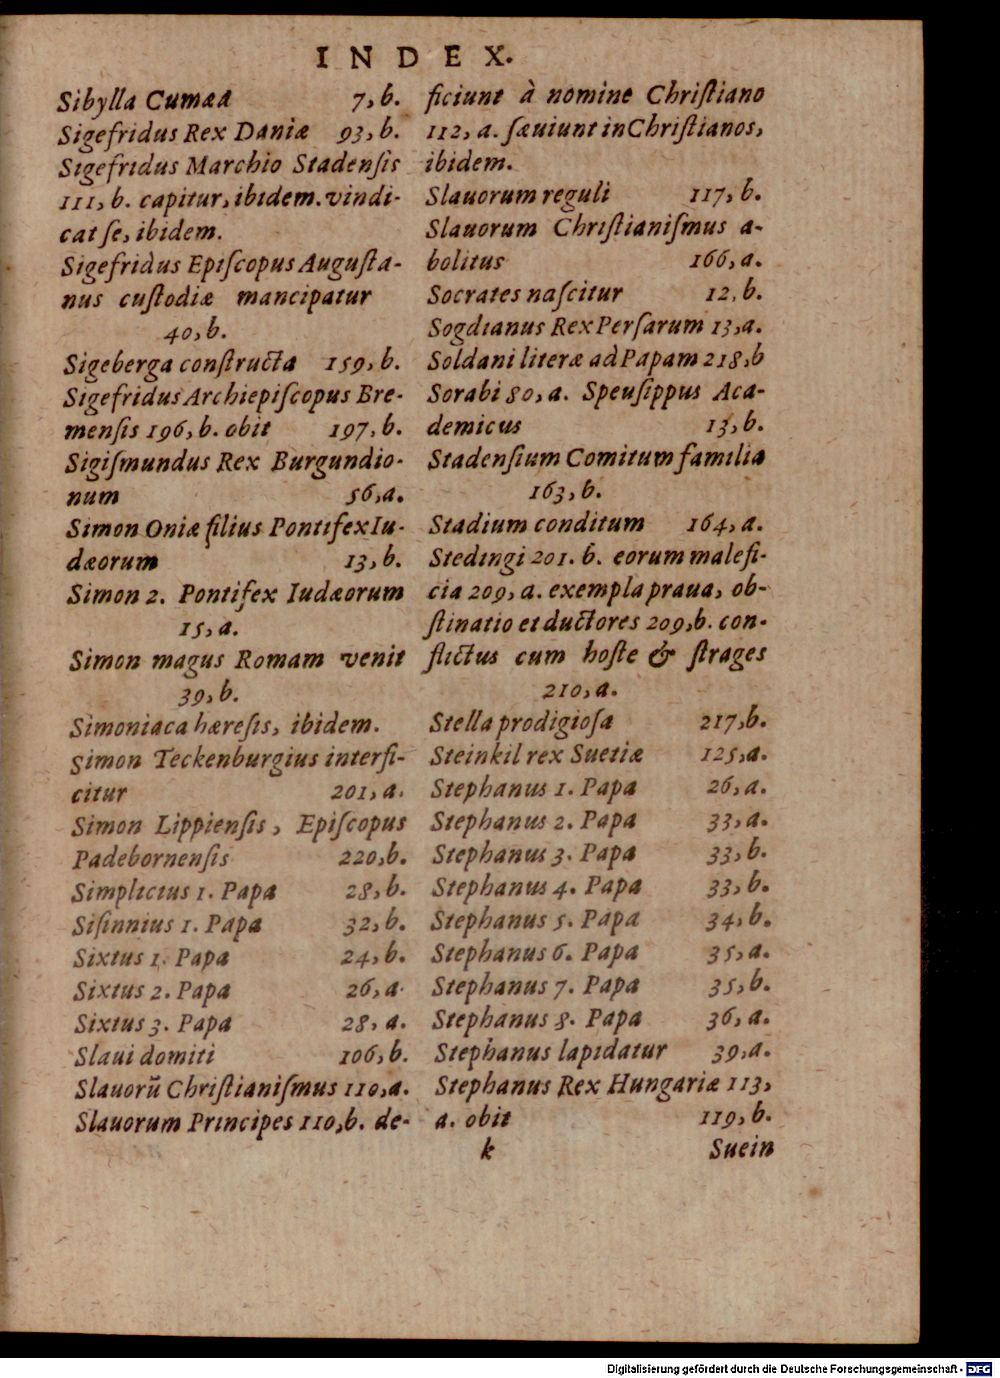 INDEX.
Sibylla Cumæa 7, b.
Sigefridus Rex Daniæ 93, b.
Sigefridus Marchio Stadenſis
111, b. capitur, ibidem. vindi-
cat ſe, ibidem.
Sigefridus Epiſcopus Auguſta-
nus cuſtodiæ mancipatur
40, b.
Sigeberga conſtructa 159, b.
Sigefridus Archiepiſcopus Bre-
menſis 196, b. obit 197, b.
Sigiſmundus Rex Burgundio-
num 56, a.
Simon Oniæ filius Pontifex Iu-
dæorum 13, b.
Simon 2. Pontifex Iudæorum
15, a.
Simon magus Romam venit
39, b.
Simoniaca hæreſis, ibidem.
Simon Teckenburgius interfi-
citur 201, a.
Simon Lippienſis, Epiſcopus
Padebornenſis 220, b.
Simplicius 1. Papa 28, b.
Siſinnius 1. Papa 32, b.
Sixtus 1. Papa 24, b.
Sixtus 2. Papa 26, a.
Sixtus 3. Papa 28, a.
Slaui domiti 106, b.
Slauorū Chriſtianiſmus 110, a.
Slauorum Principes 110, b. de-
ficiunt à nomine Chriſtiano
112, a. ſæuiunt in Chriſtianos,
ibidem.
Slauorum reguli 117, b.
Slauorum Chriſtianiſmus a-
bolitus 166, a.
Socrates naſcitur 12, b.
Sogdianus Rex Perſarum 13, a.
Soldani literæ ad Papam 218, b
Sorabi 80, a. Speuſippus Aca-
demicus 13, b.
Stadenſium Comitum familia
163, b.
Stadium conditum 164, a.
Stedingi 201. b. eorum malefi-
cia 209, a. exempla praua, ob-
ſtinatio et ductores 209, b. con-
flictus cum hoſte & ſtrages
210, a.
Stella prodigioſa 217, b.
Steinkil rex Suetiæ 125, a.
Stephanus 1. Papa 26, a.
Stephanus 2. Papa 33, a.
Stephanus 3. Papa 33, b.
Stephanus 4. Papa 33, b.
Stephanus 5. Papa 34, b.
Stephanus 6. Papa 35, a.
Stephanus 7. Papa 35, b.
Stephanus 8. Papa 36, a.
Stephanus lapidatur 39, a.
Stephanus Rex Hungariæ 113,
a. obit 119, b.
k Suein
Digitalisierung gefördert durch die Deutsche Forschungsgemeinschaft - DFG